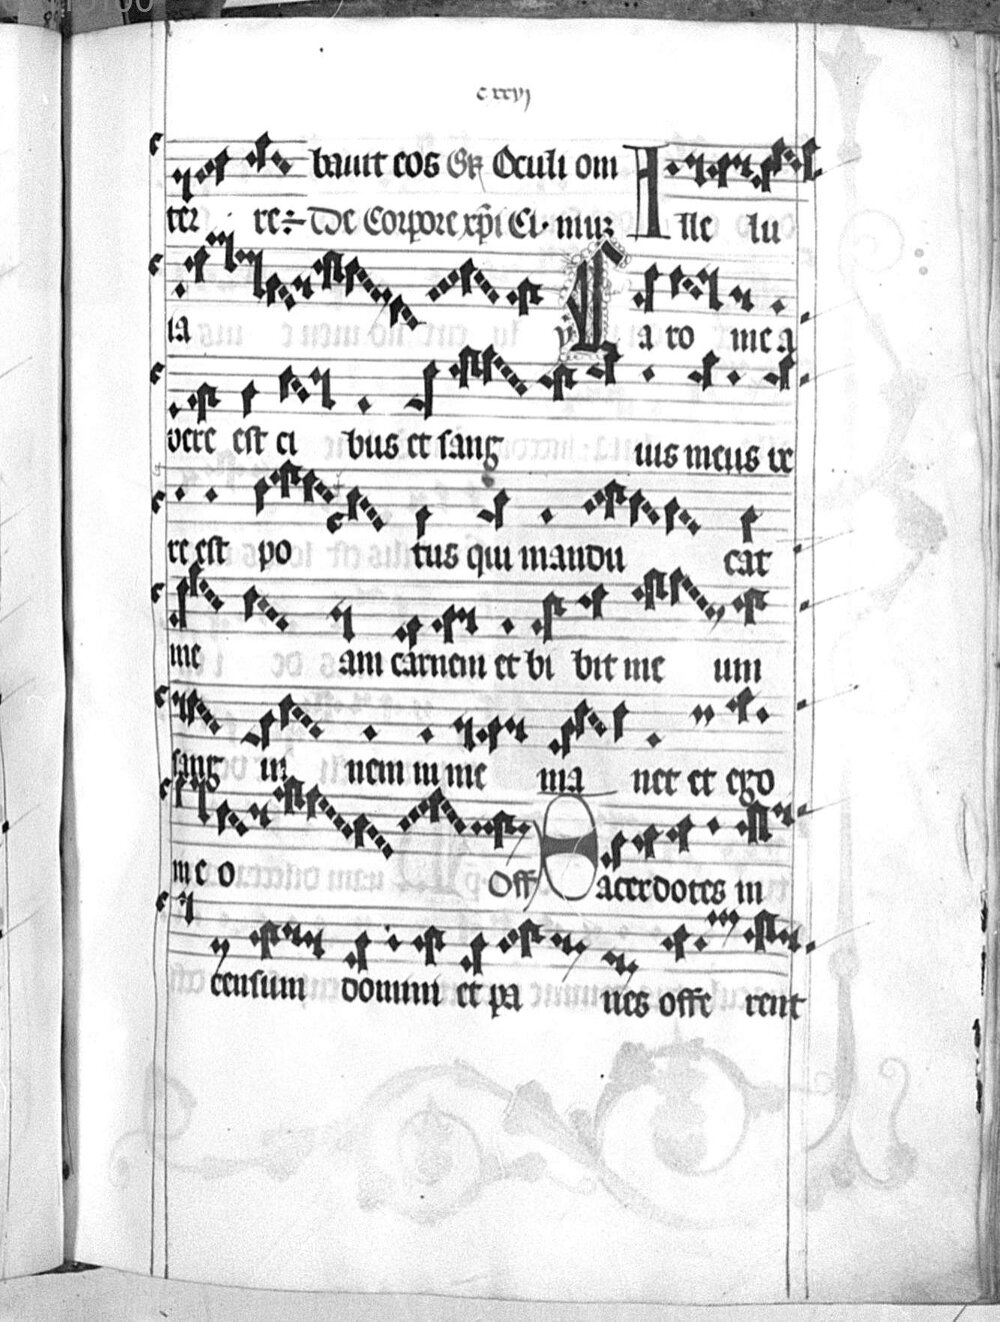 cxxvj
bauit eos Gr Oculi om
ter re De Corpore xpi Ci mus A lle lu
ia V C a ro mea
vere est ci bus et sang uis meus ve
re est po tus qui mandu cat
me am carnem et bi bit me um
sang ui nem in me ma net et ego
in e o Off S acerdotes in
censum domini et pa nes offe rent